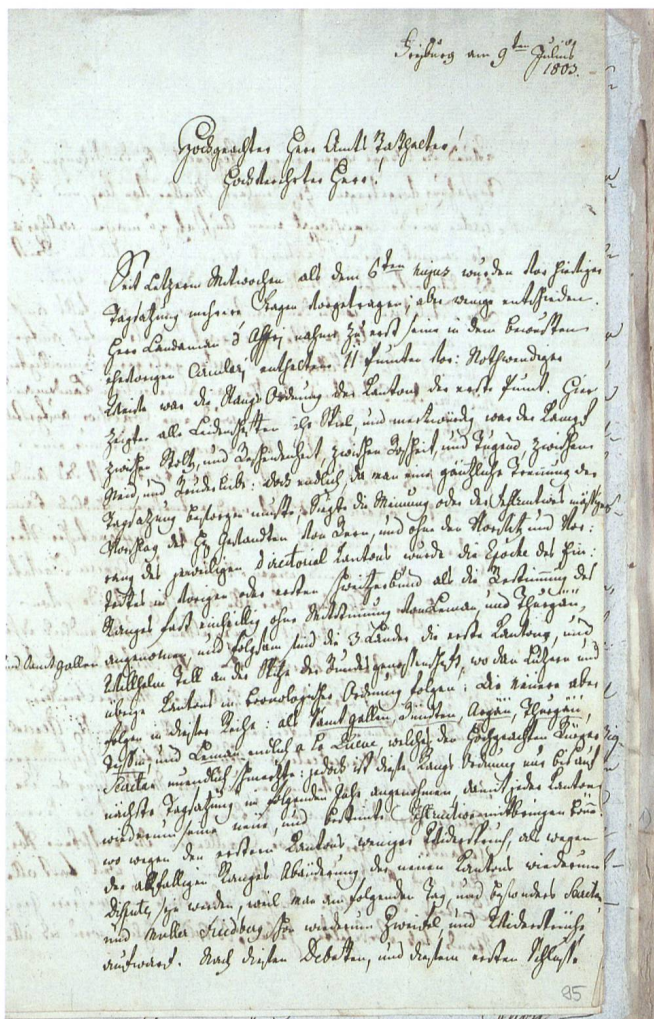 Freyburg am 9ten Julius
1803.
Hochgeachter Herr Amts Statthalter!
Hochverehrter Herr!
Seit Letztern Mitwochen als dem 6ten hujus wurden vor hiesiger
Tagsatzung mehrere Fragen vorgetragen, aber wenige entschieden.
Herr Landaman d'Affry nahme zu erst seine in dem bewusten
ehevorigen Circular, enthaltene 11 Puncten vor: Nothwendiger
Weise war die Rangs-Ordnung der Kantons der erste Punct. Hier
zeigten alle Leidenschaften ihr Spiel, und merkwürdig war der Kampf
zwischen Stolz, und Bescheidenheit, zwischen Bosheit, und Tugend, zwischen
Neid, und Bruderliebe: Doch endlich, da man eine gäntzliche Trennung der
Tagsatzung besorgen muste, siegte die Meinung oder der
Vorschlag des Hr Gesandten von Bern, und ohne den Vorsitz und Vor:
rang des jeweiligen Directorial Kantons wurde die Epoche des Ein:
trittes in vorigen oder ersten Schweitzerbund als die Bestimmung des
Ranges fast einhellig ohne Mitstimmung von Leman, und Thurgäu,
angenomen, und folgsam sind die 3 Länder die erste Kantone, und
und Sanct gallen
Willhelm Tell an der Spitze der Bundsgenossenschaft, wo dan Lutzern und
übrige Kantons in Cronologischer Ordnung folgen: die neuere aber
folgen in dieser Reihe: als Sanct gallen, Bündten, Argäu, Thurgäu,
Tessin, und Leman endlich a la Queue, welches den Hochgeachten Bürger
Secretan unendlich schmerzte: jedoch ist diese Rangs Ordnung nur bis auf
nächste Tagsatzung im folgenden Jahr angenohmen, damit jeder Kanton
wiederum seine neue, und bestimte Instructionen mitbringen könne
wo wegen den erstern Kantons weniger Widerspruch, als wegen
der allfälligen Ranges Abänderung der neuen Kantons wiederum
Dispute seyn werden, weil man am folgenden Tag, und besonders Secretan
und Müller Friedberg schon wiederum Zweifel und Widersprüche
aufwarf. Nach diesen Debatten, und diesem ersten Schlusse
95